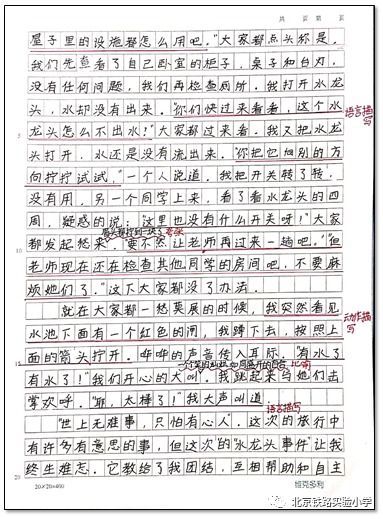 共 页 第 页
屋子里的设施都怎么用吧。"大家都点头称是。
我们先查看了自己卧室的柜子，桌子和台灯，
没有任何问题，我们再检查厕所。我打开水龙
头，水却没有出来。"你们快过来看看，这个水
语言描写
龙头怎么不出水！"大家都过来看。我又把水龙
头打开，水还是没有流出来。"你把它向别的方
向拧拧试试。"一个人说道，我把开关转了转，
没有用，另一个同学上来，看了看水龙头的四
周，疑惑的说："这里也没有什么开关呀！"大家
眉头都拧到一块了 夸张
都发起愁来，"要不然让老师再过来一趟吧。""但
老师现在还在检查其他同学的房间吧，不要麻
烦她们了。"这下大家都没了办法。
就在大家都一愁莫展的时候，我突然看见
动作描写
水池下面有一个红色的闸，我蹲下去，按照上
面的箭头拧开。哗哗的声音传入耳际。"有水了
一个个的 如同盛开的 比喻
有水了！"我们开心的大叫。我就起来与她们击
掌欢呼。"耶，太棒了！"我大声叫道。
语言描写
"世上无难事，只怕有心人"。这次的旅行中
有许多有意思的事，但这次的"水龙头事件"让我
终生难忘。它教给了我团结，互相帮助和自主
20×20=400
维克多利
北京铁路实验小学
5
10
15
20